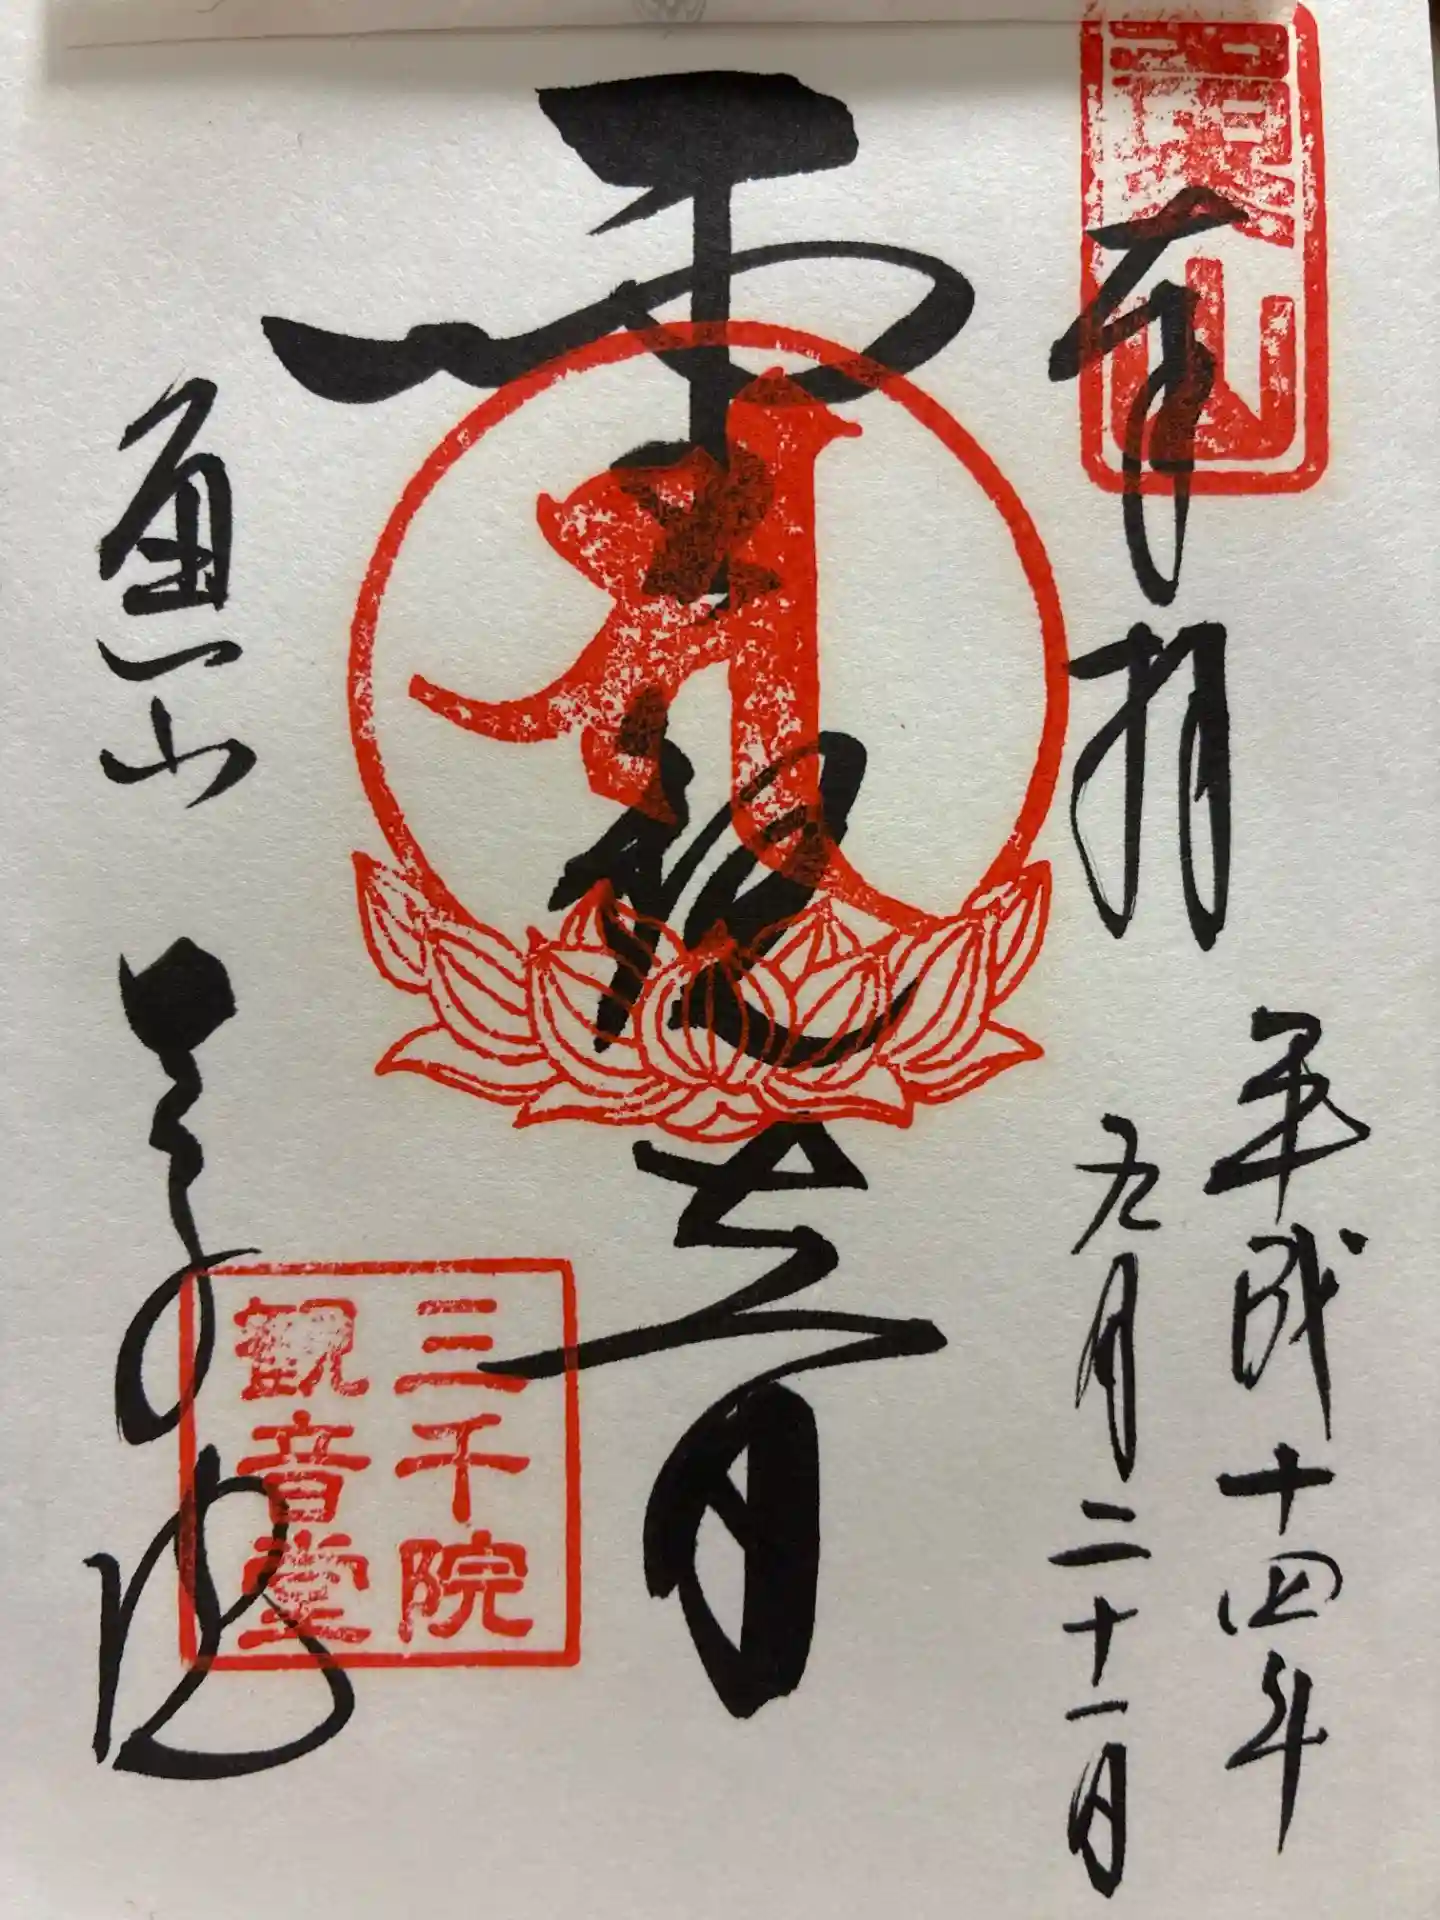 奉拝
平成十四年
九月二十一日
観音
魚山 三千院
三千院
観音堂